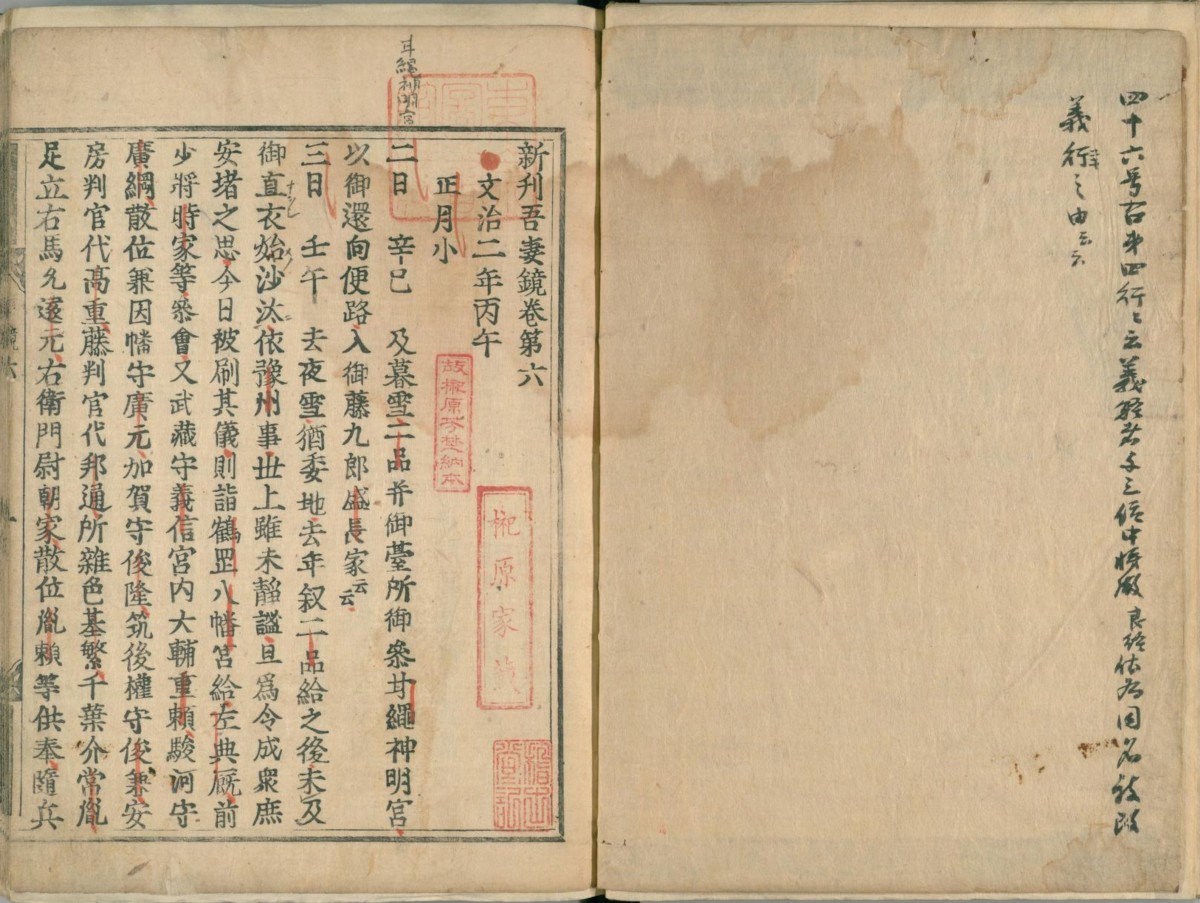 四十六号右第四行ニ云義経者与三位中将殿良経依為同名被改
義行之由云云
甘縄神明宮
新刊吾妻鏡卷第六
文治二年丙午
正月小
二日　辛巳　及暮雪二品并御臺所御叅甘繩神明宮
以御還向便路入御藤九郎盛長家云云
三日　壬午　去夜雪猶委地去年叙二品給之後未及
御直衣始沙汰依豫州事世上雖未靜謐且爲令成衆庶
安堵之思今日被刷其儀則詣鶴罡八幡宮給左典厩前
少將時家等叅會又武藏守義信宮内大輔重頼駿河守
廣綱散位兼因幡守廣元加賀守俊隆筑後權守俊兼安
房判官代高重藤判官代邦通所雜色基繁千葉介常胤
足立右馬允遠元右衛門尉朝家散位胤頼等供奉隨兵
故榊原芳埜納本
榊原家藏